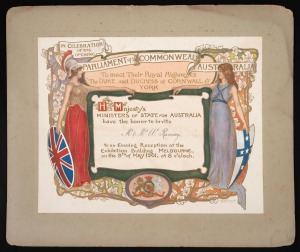 IN CELEBRATION
OF THE
OPENING
PARLIAMENT OF COMMONWEALTH AUSTRALIA
To meet Their Royal Highnesses
The DUKE and DUCHESS of CORNWALL &
YORK
His Majesty's
MINISTERS OF STATE FOR AUSTRALIA
have the honor to invite
to an Evening Reception at the
Exhibition Building MELBOURNE,
on the 9th of MAY 1901, at 8 o'clock.